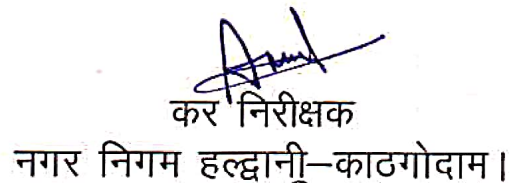 कर निरीक्षक
नगर निगम हल्द्वानी–काठगोदाम।